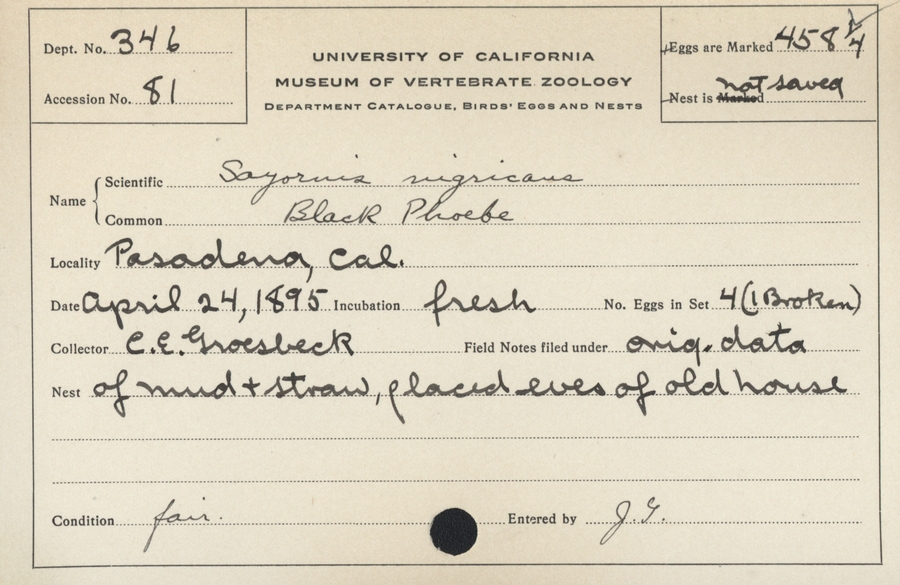 Dept. No. 346
Accession No. 81
UNIVERSITY OF CALIFORNIA
MUSEUM OF VERTEBRATE ZOOLOGY
DEPARTMENT CATALOGUE, BIRDS' EGGS AND NESTS
Eggs are Marked 458 1/4
not saved
Nest is Marked
Name
Scientific Sayornis nigricans
Common Black Phoebe
Locality Pasadena, Cal.
Date April 24, 1895 Incubation fresh No. Eggs in Set 4 (1 Broken)
Collector C.E. Groesbeck Field Notes filed under orig. data
Nest of mud + straw, placed eves of old house
Condition fair. Entered by J.G.